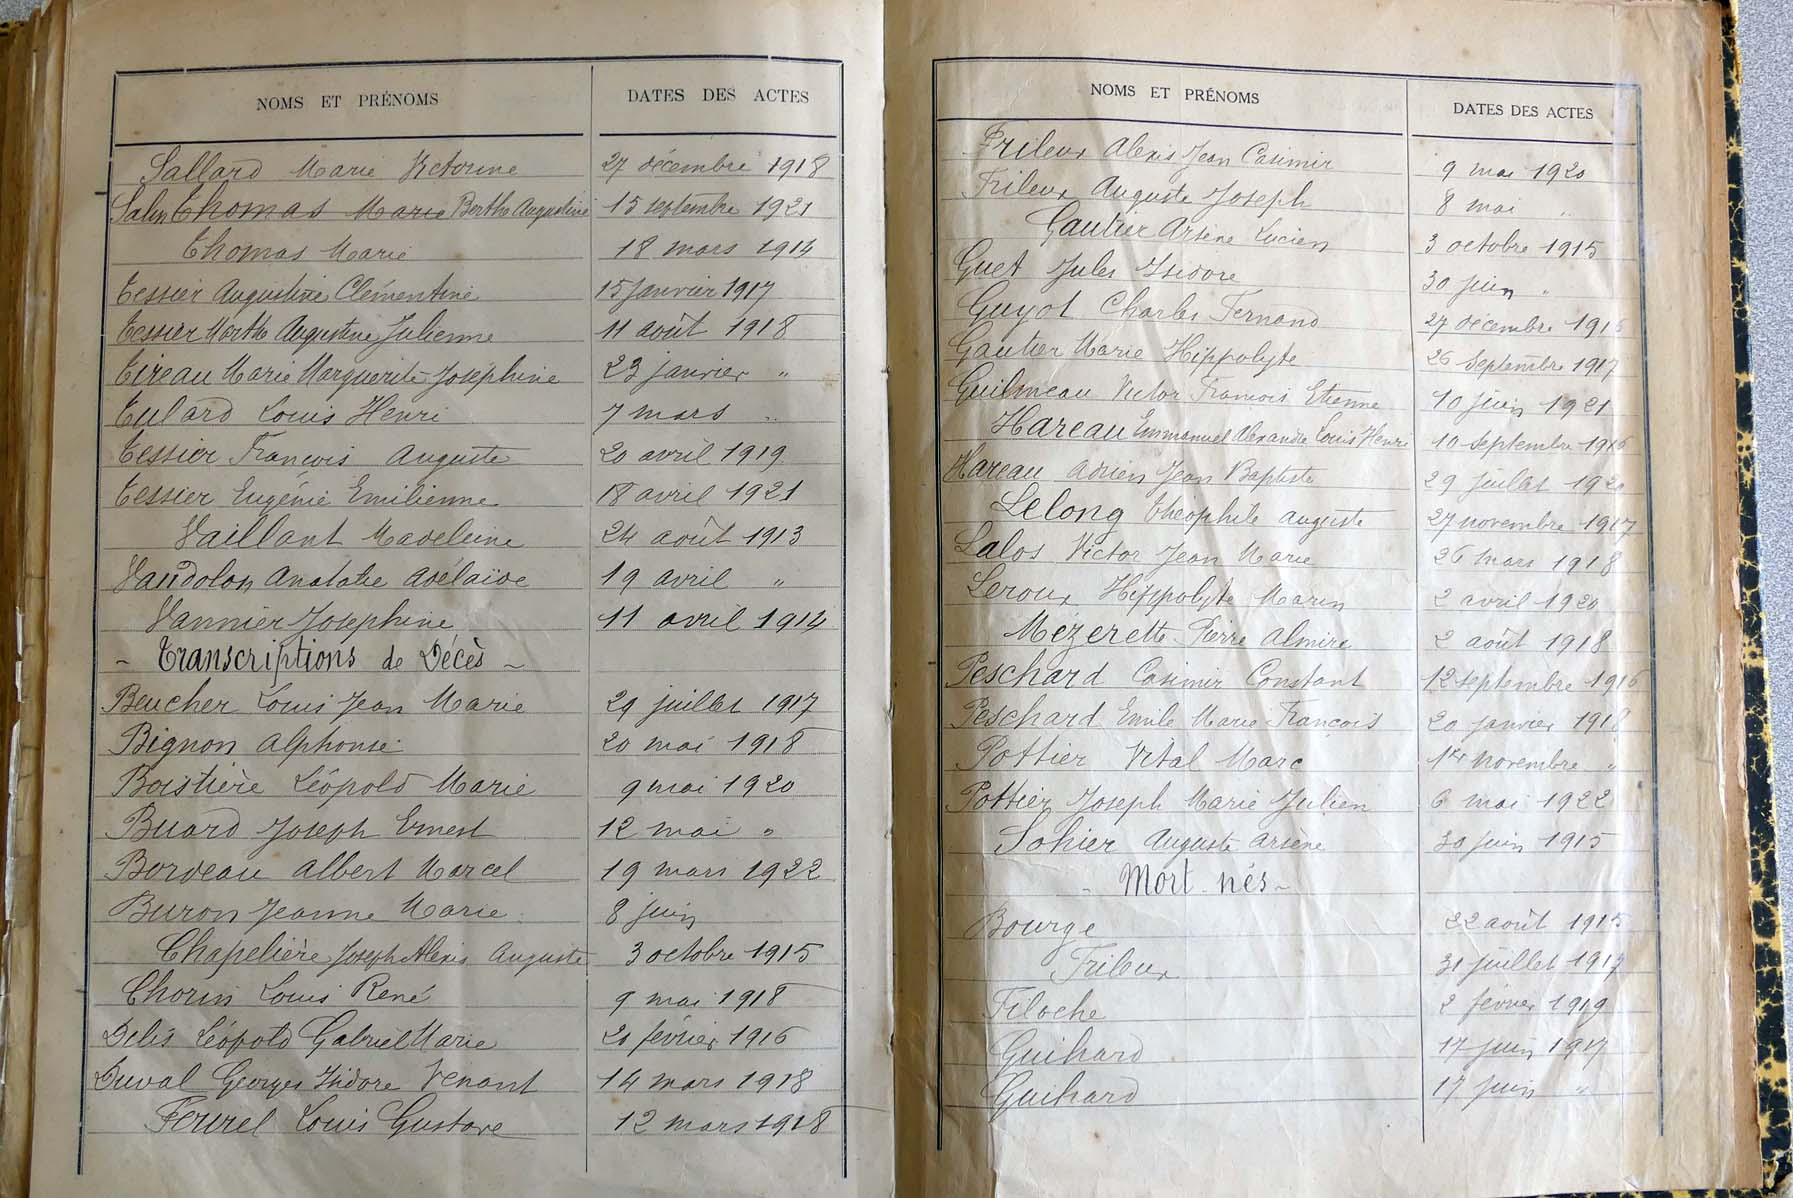 NOMS ET PRÉNOMS DATES DES ACTES
Sallard Marie Victorine 27 décembre 1918
Salin Thomas Marie Berthe Augustine 15 septembre 1921
Thomas Marie 18 mars 1914
Tessier Augustine Clémentine 15 janvier 1917
Tessier Marthe Augustine Julienne 11 août 1918
Tireau Marie Marguerite Joséphine 23 janvier "
Tulard Louis Henri 7 mars "
Tessier François Auguste 20 avril 1919
Tessier Eugénie Emilienne 18 avril 1921
Vaillant Madeleine 24 août 1913
Vaudolon Anatalie Adélaïde 19 avril "
Vannier Josephine 11 avril 1914
- Transcriptions de Décès -
Beucher Louis Jean Marie 29 juillet 1917
Bignon Alphonse 20 mai 1918
Boistière Léopold Marie 9 mai 1920
Buard Joseph Ernest 12 mai "
Bordeau Albert Marcel 19 mars 1922
Buron Jeanne Marie 8 juin
Chapelière Joseph Alexis Auguste 3 octobre 1915
Chorin Louis René 9 mai 1918
Delis Léopold Gabriel Marie 20 février 1916
Duval Georges Isidore Venant 14 mars 1918
Feurel Louis Gustave 12 mars 1918
NOMS ET PRÉNOMS DATES DES ACTES
Frileux Alexis Jean Casimir 9 mai 1920
Frileux Auguste Joseph 8 mai "
Gautier Arsène Lucien 3 octobre 1915
Guet Jules Isidore 30 juin "
Guyot Charles Fernand 27 décembre 1916
Gautier Marie Hippolyte 26 Septembre 1917
Guilmeau Victor François Etienne 10 juin 1921
Hareau Emmanuel Alexandre Louis Henri 10 septembre 1916
Hareau Adrien Jean Baptiste 29 juillet 1920
Lelong Théophile Auguste 27 novembre 1917
Lalos Victor Jean Marie 26 mars 1918
Leroux Hippolyte Marin 2 avril 1920
Mézerette Pierre Almire 2 août 1918
Peschard Casimir Constant 12 septembre 1916
Peschard Emile Marie François 20 janvier 1918
Pottier Vital Marc 1er novembre "
Pottier Joseph Marie Julien 6 mai 1922
Sohier Auguste Arsène 30 juin 1915
- Mort-nés -
Bourge 22 août 1915
Frileux 31 juillet 1917
Filoche 2 février 1919
Guihard 17 juin 1917
Guihard 17 juin "